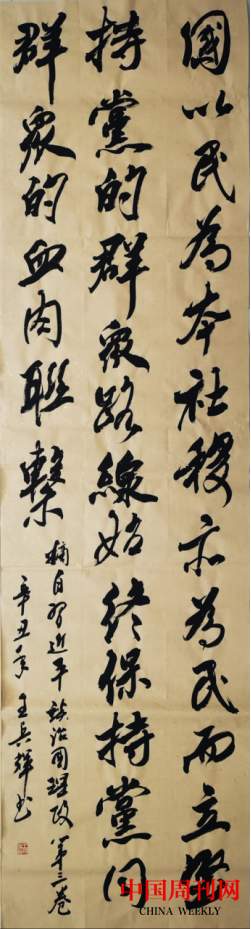 國以民為本社稷亦為民而立堅
持黨的群衆路線始終保持黨同
群衆的血肉聯繫
摘自習近平談治国理政第三卷
辛丑年王兵輝书
中国周刊网
CHINA WEEKLY